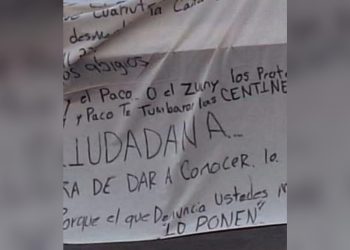 desme
os abigos
y el Paco O el Zuny los Prot
y Paco Te Tumbaron las CENTINE
IUDADANA..
RA DE DAR A CONOCER. lo
Porque el que Denuncia Ustedes
"LO PONEN"